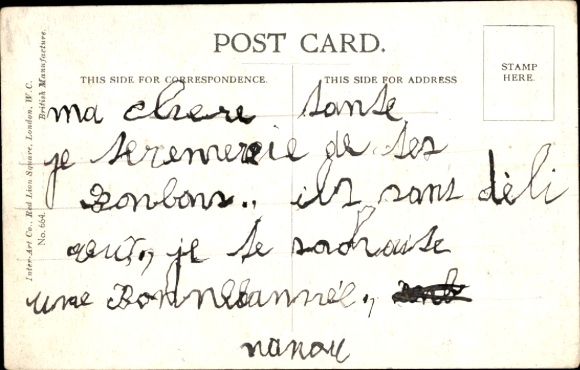 POST CARD.
STAMP
HERE.
THIS SIDE FOR CORRESPONDENCE.
THIS SIDE FOR ADDRESS
Inter-Art Co., Red Lion Square, London, W.C.
British Manufacture.
No. 664.
ma chere tante
je teremercie de tes
Bonbons., ils sont dèli
je te souhaite
une Bonne année.,